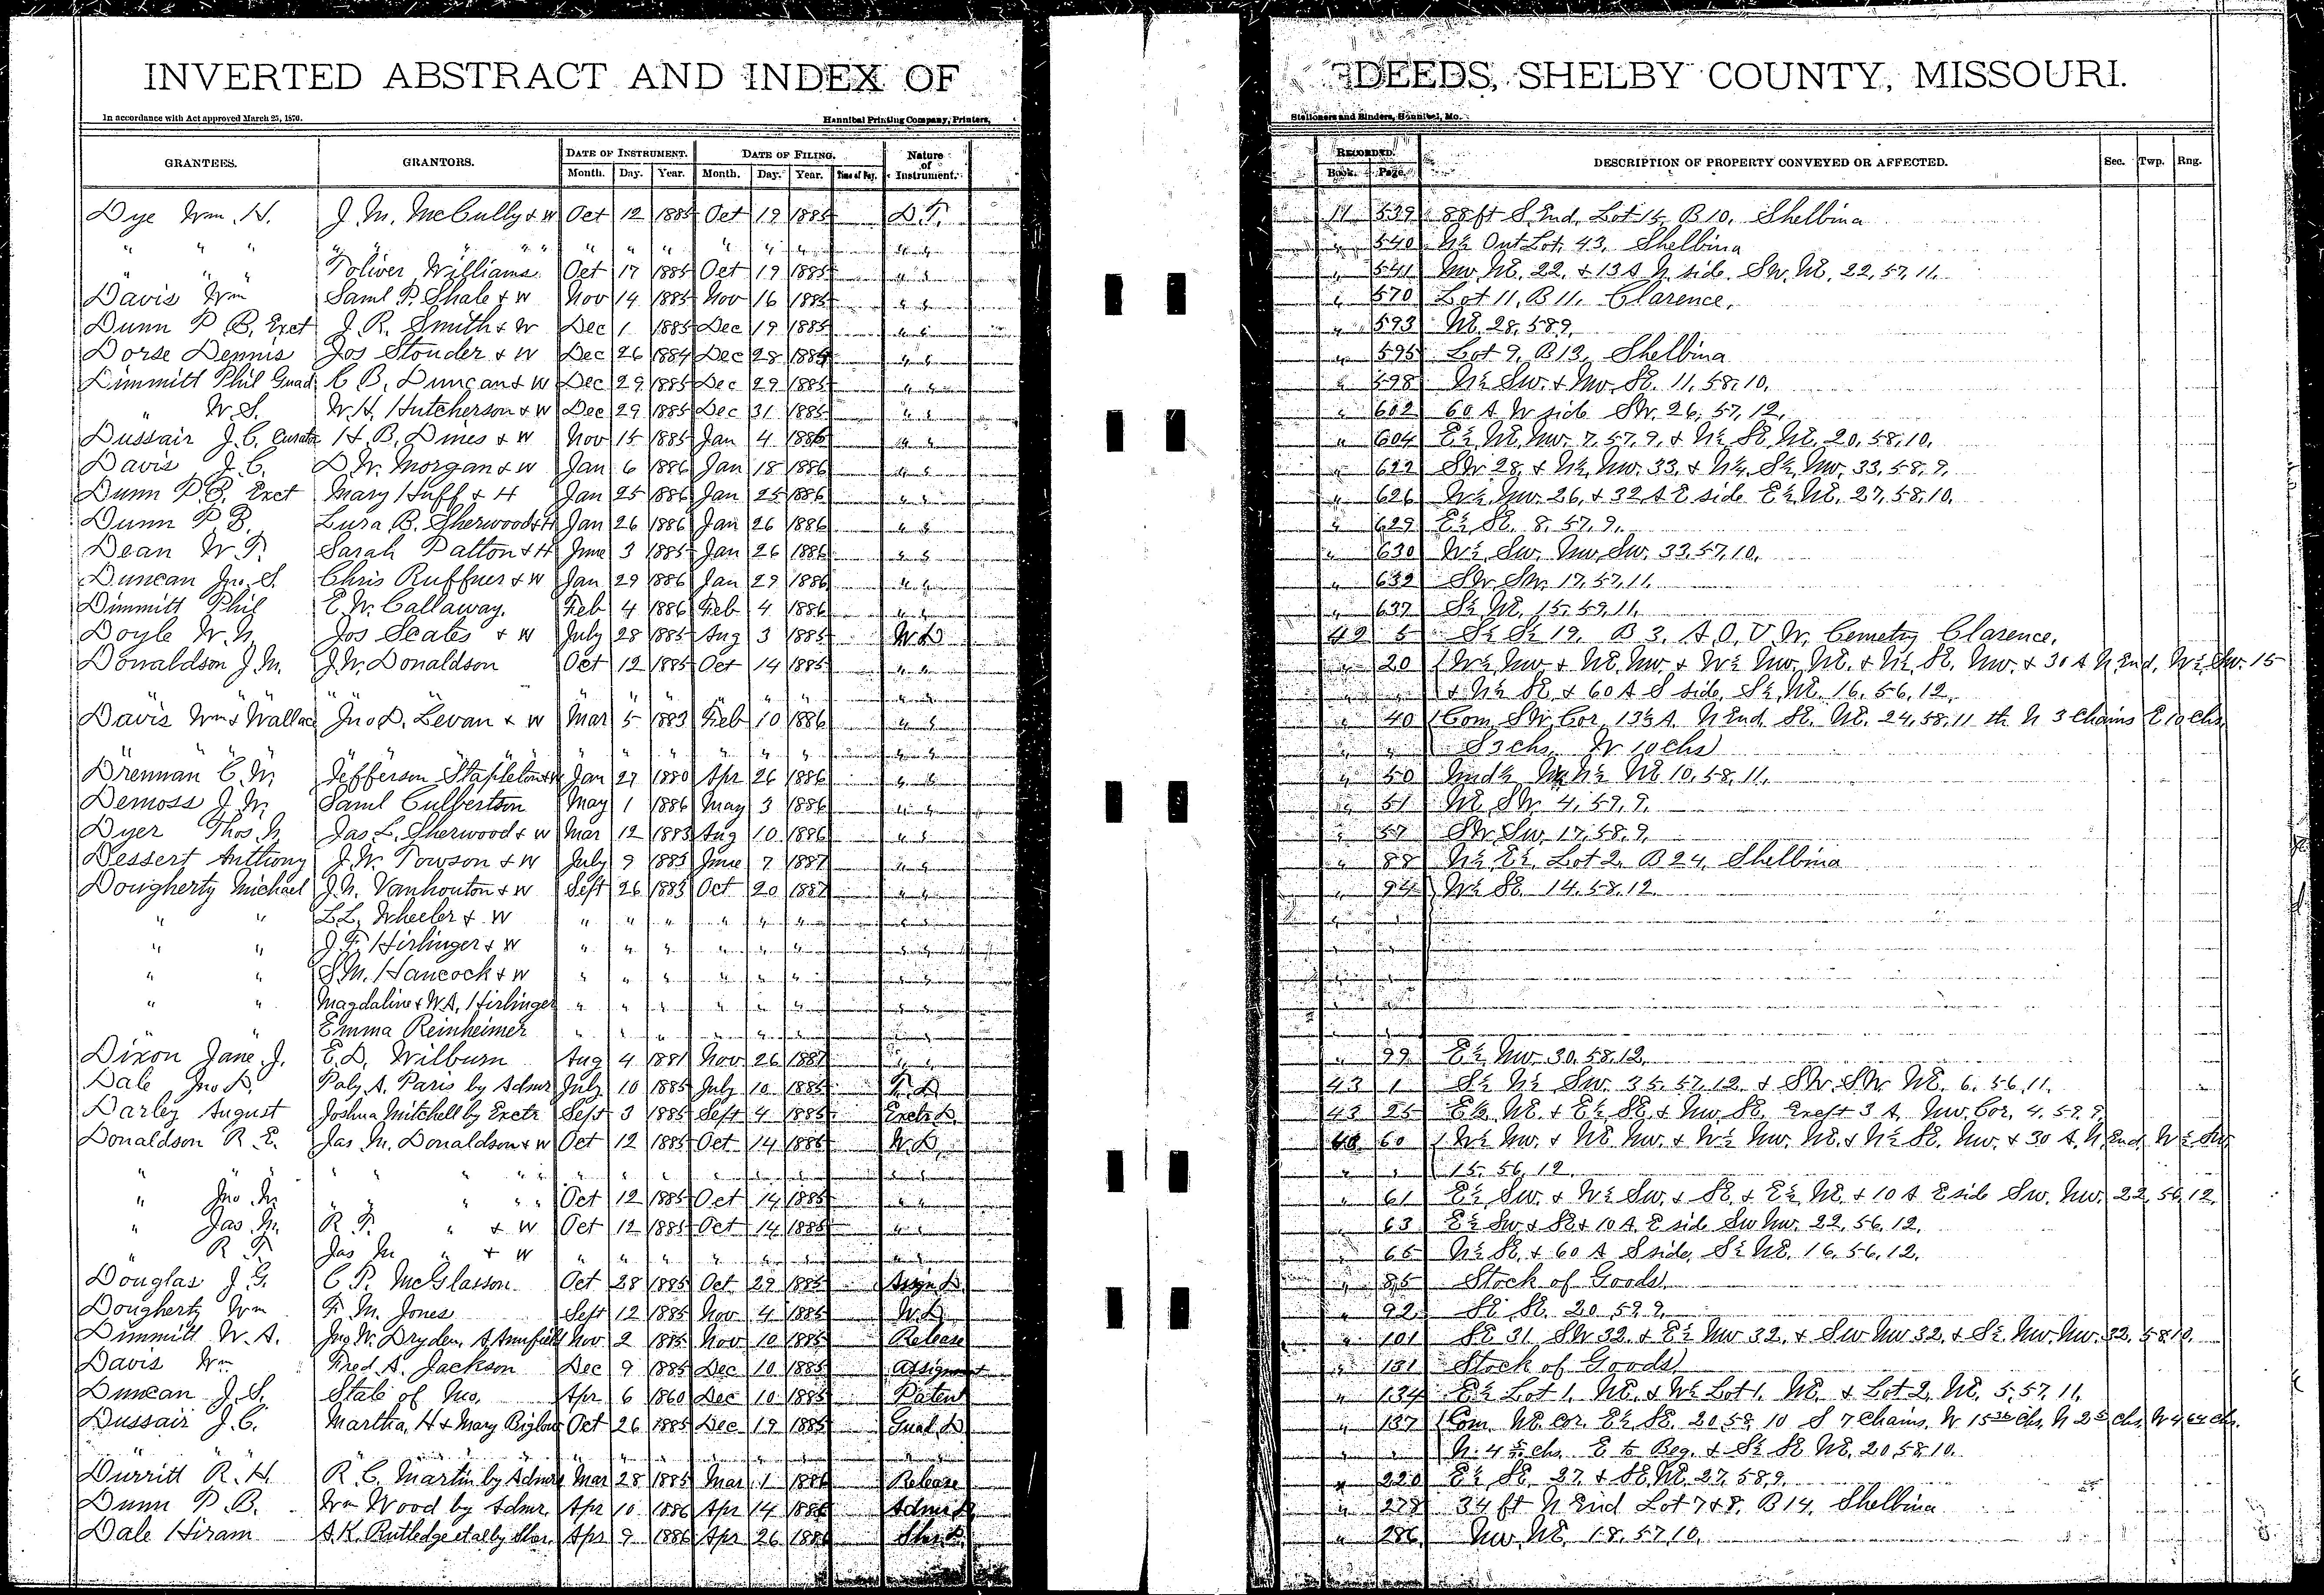 INVERTED ABSTRACT AND INDEX OF DEEDS, SHELBY COUNTY, MISSOURI.
In accordance with Act approved March 25, 1870. Hannibal Printing Company, Printers, Stationers and Binders, Hannibal, Mo.
GRANTEES. GRANTORS. DATE OF INSTRUMENT. DATE OF FILING. Nature of Instrument. RECORDED. DESCRIPTION OF PROPERTY CONVEYED OR AFFECTED. Sec. Twp. Rng.
Month. Day. Year. Month. Day. Year. Time of Day. Book. Page.
Dye Wm. H. J. M. McCully & W Oct 12 1885 Oct 19 1885 D.T. 11 539 88 ft S. End, Lot 15, B 10, Shelbina
" " " " " " " " " " " " " " " " 540 N½ Out Lot, 43, Shelbina
" " " Toliver Williams Oct 17 1885 Oct 19 1885 " " " 541 Nw. NE. 22, & 13 A N side, Sw. NE, 22, 57, 11.
Davis Wm Saml P. Shale & W Nov 14 1885 Nov 16 1885 " " " 570 Lot 11, B 11, Clarence,
Dunn P. B. Exct J. R. Smith & W Dec 1 1885 Dec 19 1885 " " " 593 NE. 28, 58 9,
Dorse Dennis Jos Stouder & W Dec 26 1884 Dec 28 1885 " " " 595 Lot 9, B 13, Shelbina
Dimmitt Phil Guad. C. B. Duncan & W Dec 29 1885 Dec 29 1885 " " " 598 N½ Sw. & Nw. SE. 11, 58, 10,
" W. S. W. H. Hutcherson & W Dec 29 1885 Dec 31 1885 " " " 602 60 A W side SW. 26, 57, 12,
Dussair J. C. Curator H. B. Dines & W Nov 15 1885 Jan 4 1886 " " " 604 E½ NE. Nw. 7, 57, 9, & N½ SE, NE, 20, 58, 10,
Davis J. C. D. W. Morgan & W Jan 6 1886 Jan 18 1886 " " " 622 SW. 28, & N½, Nw. 33, & N½, S½, Nw. 33, 58, 9,
Dunn P. B. Exct Mary Huff & H Jan 25 1886 Jan 25 1886 " " " 626 W½, Nw. 26, & 32 A E side E½ NE. 27, 58, 10,
Dunn P. B. Lura B. Sherwood & H Jan 26 1886 Jan 26 1886 " " " 629 E½ SE. 8, 57, 9,
Dean W. T. Sarah Patton & H June 3 1885 Jan 26 1886 " " " 630 W½, Sw. Nw, Sw. 33, 57, 10,
Duncan Jno. S. Chris Ruffner & W Jan 29 1886 Jan 29 1886 " " " 632 SW. SW. 17, 57, 11,
Dimmitt Phil E. W. Callaway, Feb 4 1886 Feb 4 1886 " " " 637 S½ NE. 15, 59, 11,
Doyle W. N. Jos Scates & W July 28 1885 Aug 3 1885 W.D 42 5 S½ S½ 19, B 3, A.O.U.W. Cemetry Clarence,
Donaldson J. M. J. W. Donaldson Oct 12 1885 Oct 14 1885 " " " 20 W½ Nw. & NE. Nw. & W½ Nw. NE. & N½ SE. Nw. & 30 A N. End, W½ Sw. 15
" " " " " " " " " " " & N½ SE. & 60 A S side, S½ NE. 16, 56, 12,
Davis Wm & Wallace Jno D. Levan & W Mar 5 1883 Feb 10 1886 " " " 40 Com. SW. Cor, 13½ A. N End, SE. NE. 24, 58, 11 th N 3 Chains E 10 chs,
" " " " " " " " " " " S 3 chs, W 10 chs
Drennan C. W. Jefferson Stapleton & W Jan 27 1880 Apr 26 1886 " " " 50 Und½ N½ NE 10, 58, 11,
Demoss J. W. Saml Culbertson May 1 1886 May 3 1886 " " " 51 NE. SW. 4, 59, 9,
Dyer Thos. N Jas L. Sherwood & W Mar 12 1883 Aug 10 1886 " " " 57 SW. Sw, 17, 58, 9,
Dessert Anthony J. W. Towson & W July 9 1883 June 7 1887 " " " 88 N½ E½, Lot 2, B 24, Shelbina
Dougherty Michael J. N. Vanhouton & W Sept 26 1883 Oct 20 1887 " " " 94 W½ SE. 14, 58, 12
" " L. L. Wheeler & W " " " " " " " "
" " J. F. Hirlinger & W " " " " " " " "
" " S. M. Hancock & W " " " " " " " "
" " Magdaline & W. A. Hirlinger " " " " " " " "
" " Emma Reinheimer " " " " " " " "
Dixon Jane J. E. D. Wilburn Aug 4 1881 Nov 26 1887 " " " 99 E½, Nw. 30, 58, 12,
Dale Jno D. Paly A. Paris by Admr July 10 1885 July 10 1885 T. D 43 1 S½ N½ Sw. 35, 57, 12, & SW. SW. NE. 6, 56, 11,
Darley August Joshua Mitchell by Exctr Sept 3 1885 Sept 4 1885 Exctr D. 43 25 E½ NE. & E½ SE. & Nw. SE. Except 3 A, Nw. Cor, 4, 59, 9,
Donaldson R. E. Jas. M. Donaldson & W Oct 12 1885 Oct 14 1885 W.D. 43 60 W½ Nw. & NE. Nw. & W½ Nw. NE. & N½ SE. Nw. & 30 A. N. End, W½ Sw,
" " " " " " " " " " " 15, 56, 12,
" Jno. M. " " " " Oct 12 1885 Oct 14 1885 " " " 61 E½ Sw. & W½ Sw. & SE. & E½ NE. & 10 A E side Sw. Nw. 22, 56, 12,
" Jas. M. R. F. " & W Oct 12 1885 Oct 14 1885 " " " 63 E½ Sw. & SE & 10 A. E side Sw Nw. 22, 56, 12,
" R. F. Jas M " & W " " " " " " " " " 65 N½ SE. & 60 A S side, S½ NE. 16, 56, 12,
Douglas J. G. C. P. McGlasson Oct 28 1885 Oct 29 1885 Assgn D. " 85 Stock of Goods
Dougherty Wm F. M. Jones Sept 12 1885 Nov 4 1885 W.D. " 92 SE. SE. 20, 59, 9,
Dimmitt W. A. Jno W. Dryden, Nov 2 1885 Nov 10 1885 Release " 101 SE 31, SW 32, & E½ Nw 32, & Sw Nw 32, & S½, Nw. Nw. 32, 58 10,
Davis Wm Fred A. Jackson Dec 9 1885 Dec 10 1885 Assignment " 131 Stock of Goods
Duncan J. S. State of Mo. Apr 6 1860 Dec 10 1885 Patent " 134 E½ Lot 1, NE. & W½ Lot 1, NE. & Lot 2, NE, 5, 57, 11,
Dussair J. C. Martha, H & Mary Bigelow Oct 26 1885 Dec 19 1885 Guad D " 137 Com, NE. cor. E½ SE. 20, 58, 10 S 7 Chains, W 15 36 chs, N 2 5 chs, W 4 64 chs.
" " " " " " " " " " N. 4 chs. E to Beg. & S½ SE NE, 20 58 10.
Durritt R. H. R. C. Martin by Admrx Mar 28 1885 Mar 1 1886 Release " 220 E½ SE, 27, & SE, NE. 27, 58 9,
Dunn P. B. Wm Wood by Admr. Apr 10 1886 Apr 14 1886 Admr D. " 278 34 ft N End Lot 7 & 8, B 14, Shelbina
Dale Hiram A. K. Rutledge et al by Sher. Apr 9 1886 Apr 26 1886 Sher D. " 286 Nw. NE. 18, 57, 10,